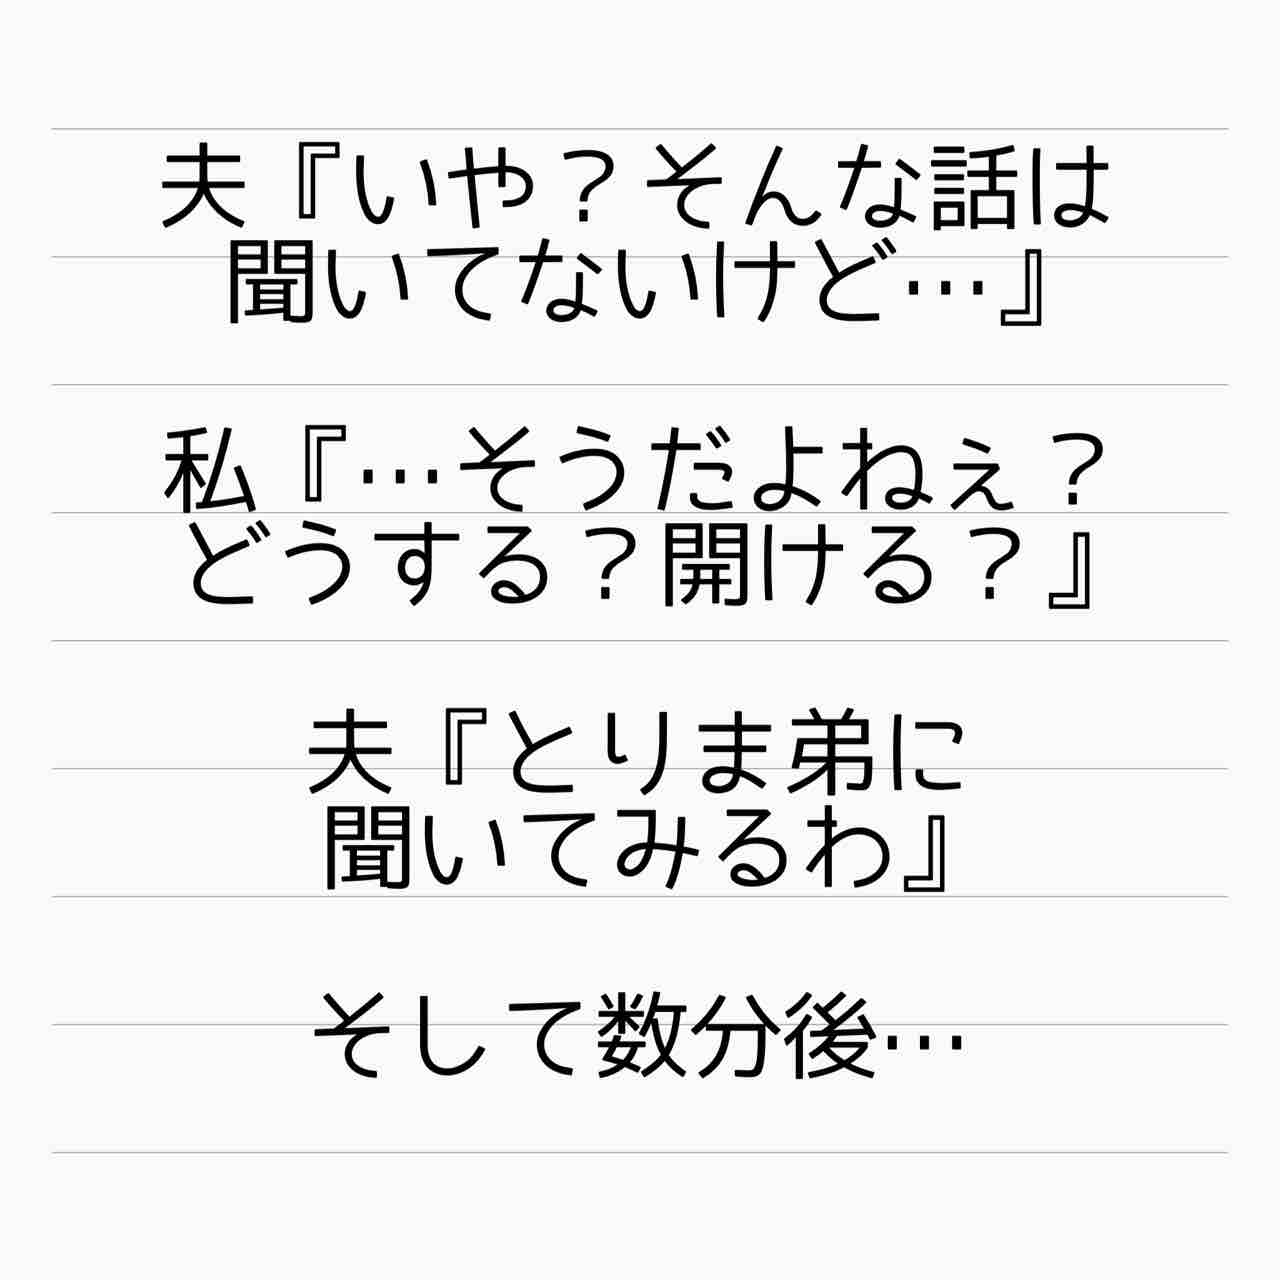 夫『いや？そんな話は
聞いてないけど…』
私『…そうだよねぇ？
どうする？開ける？』
夫『とりま弟に
聞いてみるわ』
そして数分後…